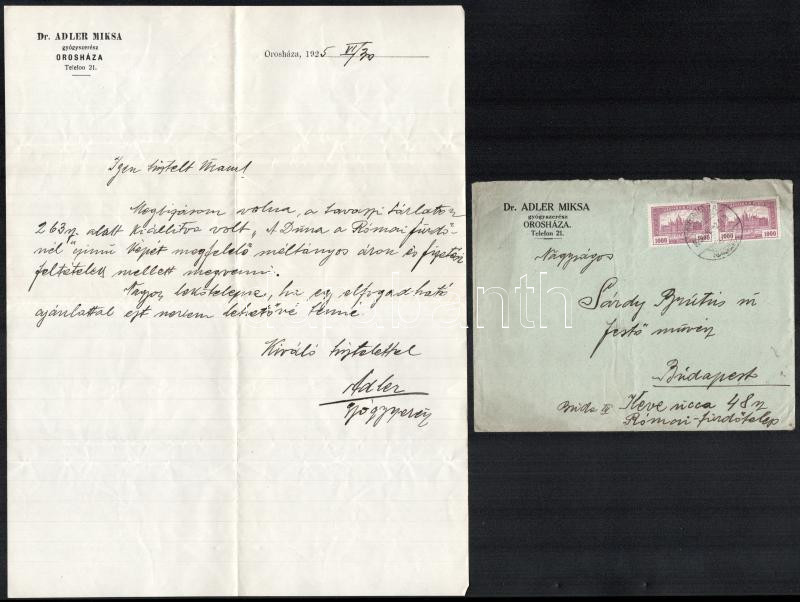 Dr. ADLER MIKSA
gyógyszerész
OROSHÁZA
Telefon 21.
Orosháza, 1925 VI/30
Igen tisztelt Uram!
Megbizásom volna, a tavaszi tárlaton
263 sz. alatt kiállitva volt "A Duna a Római fürdő-
nél" cimü képét megfelelő méltányos áron és fizetési
feltételek mellett megvenni.
Nagyon lekötelezne, ha egy elfogadható
ajánlattal ezt nekem lehetővé tenné
Kiváló tisztelettel
Adler
gyógyszerész
Dr. ADLER MIKSA
gyógyszerész
OROSHÁZA.
Telefon 21.
1000 1000
Nagyságos
Sárdy Brútus úr
festő művész
Budapest
Buda III Keve ucca 48 sz
Római-fürdőtelep